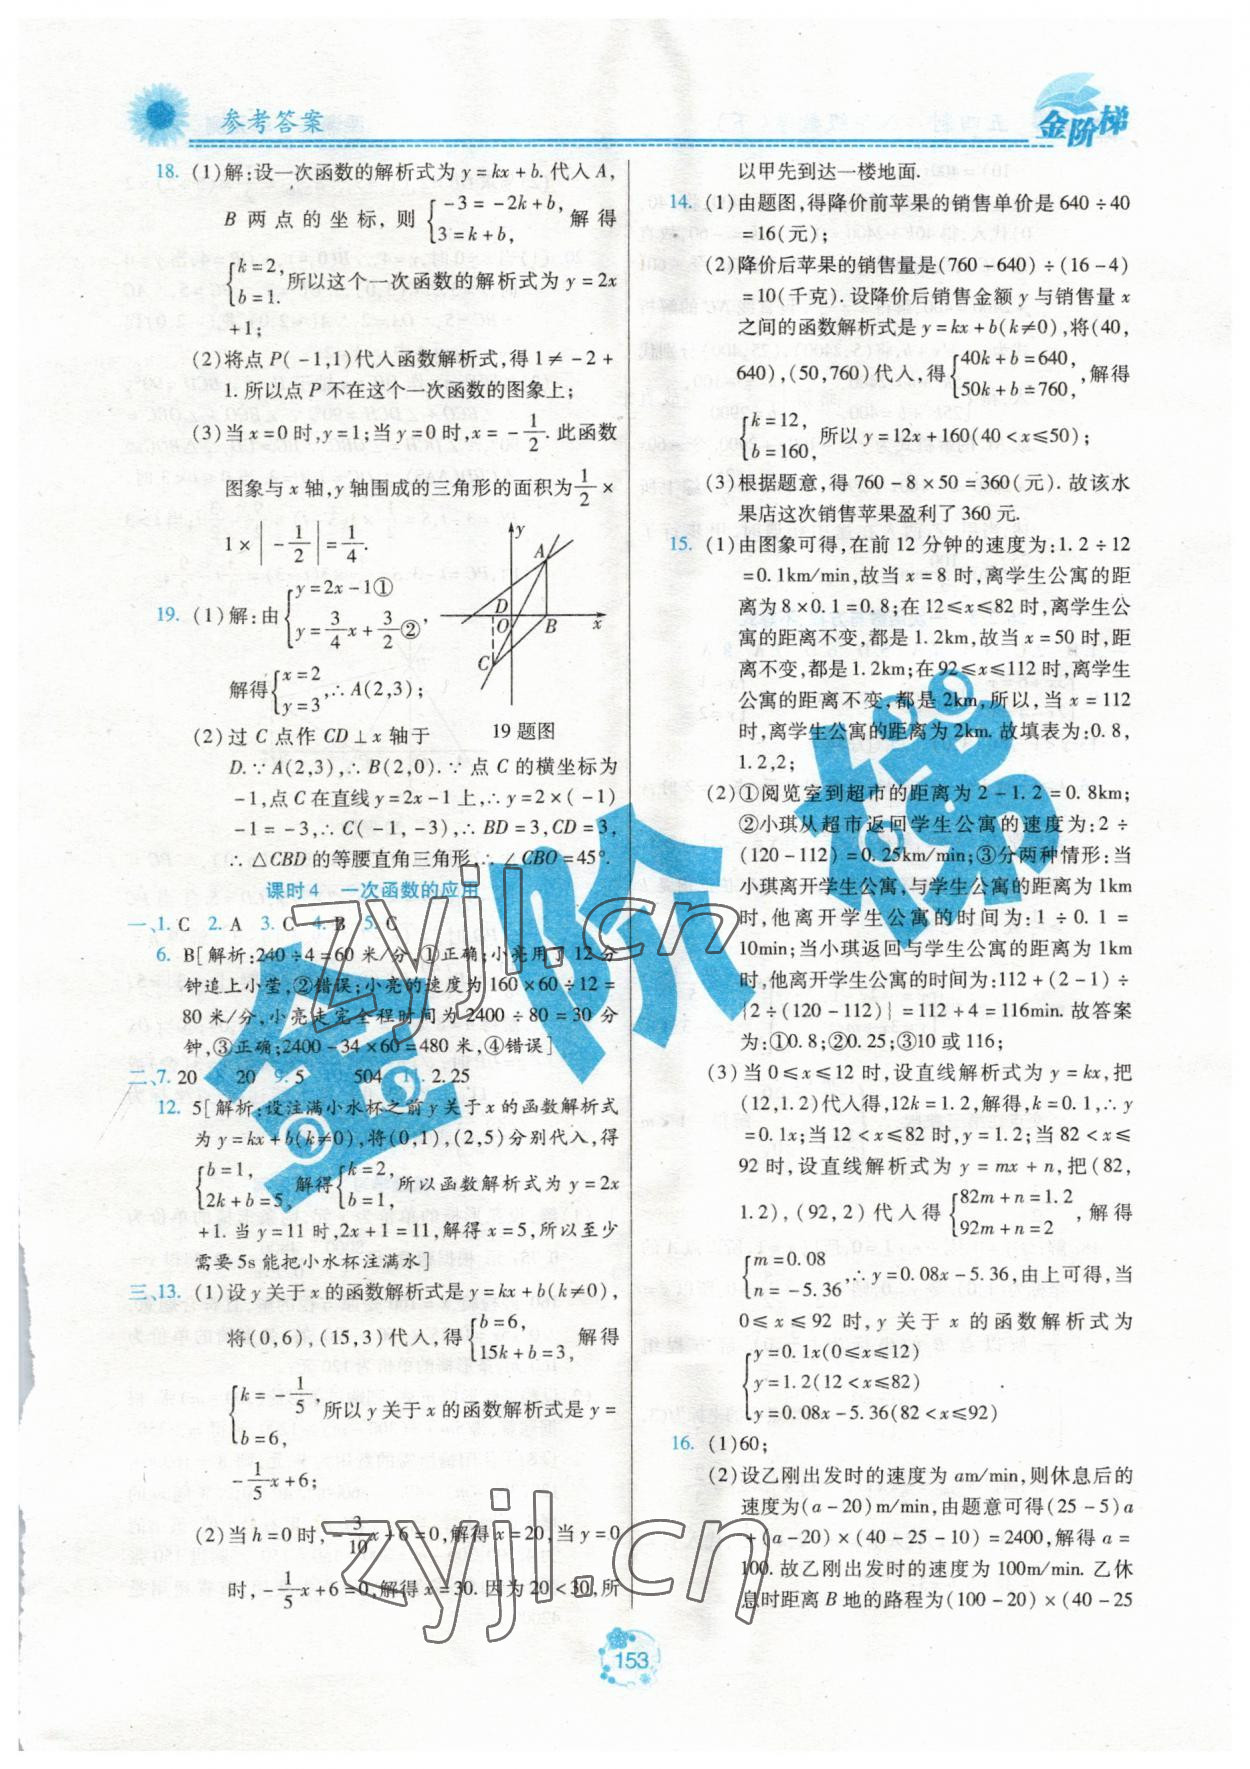 参考答案
金阶梯
18. (1)解:设一次函数的解析式为 y=kx+b. 代入 A,
B 两点的坐标, 则 {-3=-2k+b, 3=k+b, 解得
{k=2, b=1. 所以这个一次函数的解析式为 y=2x
+1;
(2)将点 P(-1,1)代入函数解析式,得 1≠-2+
1. 所以点 P 不在这个一次函数的图象上;
(3)当 x=0 时,y=1;当 y=0 时,x=-1/2. 此函数
图象与 x 轴,y 轴围成的三角形的面积为 1/2 ×
1×|-1/2|=1/4.
19. (1)解:由 {y=2x-1① y=3/4x+3/2②,
解得 {x=2 y=3, ∴A(2,3);
y
A
D
O
B
x
C
19 题图
(2)过 C 点作 CD⊥x 轴于
D. ∵A(2,3),∴B(2,0). ∵点 C 的横坐标为
-1,点 C 在直线 y=2x-1 上,∴y=2×(-1)
-1=-3,∴C(-1,-3),∴BD=3,CD=3,
∴△CBD 的等腰直角三角形,∴∠CBO=45°.
课时 4 一次函数的应用
一、1. C 2. A 3. C 4. B 5. C
6. B[解析:240÷4=60 米/分,①正确;小亮用了 12 分
钟追上小莹,②错误;小亮的速度为 160×60÷12=
80 米/分,小亮走完全程时间为 2400÷80=30 分
钟,③正确;2400-34×60=480 米,④错误]
二、7. 20 20 9. 5 504 2.25
12. 5[解析:设注满小水杯之前 y 关于 x 的函数解析式
为 y=kx+b(k≠0),将(0,1),(2,5)分别代入,得
{b=1, 2k+b=5, 解得 {k=2, b=1, 所以函数解析式为 y=2x
+1. 当 y=11 时,2x+1=11,解得 x=5,所以至少
需要 5s 能把小水杯注满水]
三、13. (1)设 y 关于 x 的函数解析式是 y=kx+b(k≠0),
将(0,6),(15,3)代入,得 {b=6, 15k+b=3, 解得
{k=-1/5, b=6, 所以 y 关于 x 的函数解析式是 y=
-1/5x+6;
(2)当 h=0 时,-3/10x+6=0,解得 x=20,当 y=0
时,-1/5x+6=0,解得 x=30. 因为 20<30,所
以甲先到达一楼地面.
14. (1)由题图,得降价前苹果的销售单价是 640÷40
=16(元);
(2)降价后苹果的销售量是(760-640)÷(16-4)
=10(千克). 设降价后销售金额 y 与销售量 x
之间的函数解析式是 y=kx+b(k≠0),将(40,
640),(50,760)代入,得 {40k+b=640, 50k+b=760, 解得
{k=12, b=160, 所以 y=12x+160(40<x≤50);
(3)根据题意,得 760-8×50=360(元). 故该水
果店这次销售苹果盈利了 360 元.
15. (1)由图象可得,在前 12 分钟的速度为:1.2÷12
=0.1km/min,故当 x=8 时,离学生公寓的距
离为 8×0.1=0.8;在 12≤x≤82 时,离学生公
寓的距离不变,都是 1.2km,故当 x=50 时,距
离不变,都是 1.2km;在 92≤x≤112 时,离学生
公寓的距离不变,都是 2km,所以,当 x=112
时,离学生公寓的距离为 2km. 故填表为:0.8,
1.2,2;
(2)①阅览室到超市的距离为 2-1.2=0.8km;
②小琪从超市返回学生公寓的速度为:2÷
(120-112)=0.25km/min;③分两种情形:当
小琪离开学生公寓,与学生公寓的距离为 1km
时,他离开学生公寓的时间为:1÷0.1=
10min;当小琪返回与学生公寓的距离为 1km
时,他离开学生公寓的时间为:112+(2-1)÷
{2÷(120-112)}=112+4=116min. 故答案
为:①0.8;②0.25;③10 或 116;
(3)当 0≤x≤12 时,设直线解析式为 y=kx,把
(12,1.2)代入得,12k=1.2,解得,k=0.1,∴y
=0.1x;当 12<x≤82 时,y=1.2;当 82<x≤
92 时,设直线解析式为 y=mx+n,把(82,
1.2),(92,2)代入得 {82m+n=1.2 92m+n=2 ,解得
{m=0.08 n=-5.36, ∴y=0.08x-5.36,由上可得,当
0≤x≤92 时,y 关于 x 的函数解析式为
{y=0.1x(0≤x≤12)
y=1.2(12<x≤82)
y=0.08x-5.36(82<x≤92)
16. (1)60;
(2)设乙刚出发时的速度为 am/min,则休息后的
速度为(a-20)m/min,由题意可得(25-5)a
+(a-20)×(40-25-10)=2400,解得 a=
100. 故乙刚出发时的速度为 100m/min. 乙休
息时距离 B 地的路程为(100-20)×(40-25
153
金阶梯
zyjl.cn
zyjl.cn